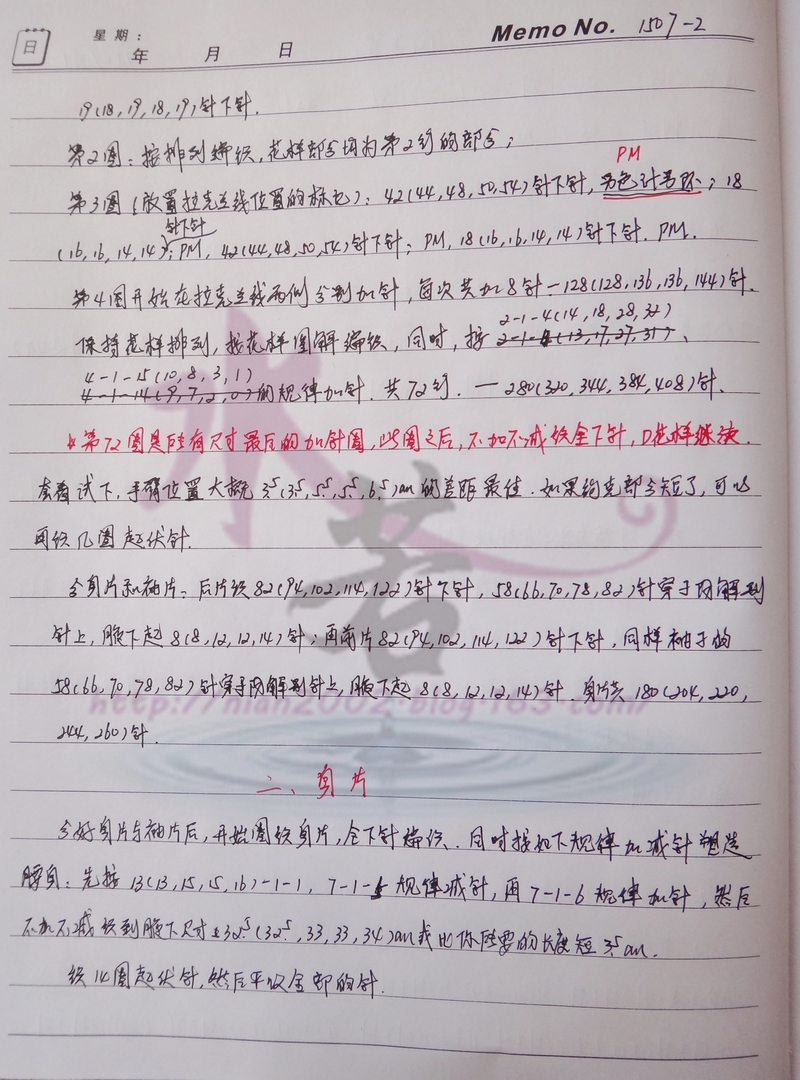 日
星期:
年 月 日
Memo No. 1507-2
19(18,19,18,19)针下针.
第2圈:按排列编织,花样部分均为第2行的部分;
PM
第3圈(放置拉克兰线位置的标记):42(44,48,50,54)针下针,另色计号环;18
针下针
(16,16,14,14);PM,42(44,48,50,54)针下针;PM,18(16,16,14,14)针下针.PM.
第4圈开始在拉克兰线两侧分别加针,每次共加8针—128(128,136,136,144)针.
2-1-4(14,18,28,32)
保持花样排列,按花样图解编织,同时,按2-1-4(13,17,27,31)、
4-1-15(10,8,3,1)
4-1-14(9,7,2,0)的规律加针.共72行.—280(320,344,384,408)针.
第72圈是所有尺寸最后的加针圈,此圈之后,不加不减织全下针,D花样继续.
套着试下,手臂位置大概3.5(3.5,5.5,5.5,6.5)cm的差距最佳.如果约克部分短了,可以
再织几圈起伏针.
分身片和袖片:后片织82(94,102,114,122)针下针,58(66,70,78,82)针穿于防解别
针上,腋下起8(8,12,12,14)针;再前片82(94,102,114,122)针下针,同样袖子的
58(66,70,78,82)针穿于防解别针上,腋下起8(8,12,12,14)针.身片共180(204,220,
244,260)针.
二、身片
分好身片与袖片后,开始圈织身片,全下针编织.同时按如下规律加减针塑造
腰身:先按13(13,15,15,16)-1-1,7-1-5规律减针,再7-1-6规律加针,然后
不加不减织到腋下尺寸32.5(32.5,33,33,34)cm或比你所要的长度短3.5cm.
织14圈起伏针,然后平收全部的针.
水若
http://nian2002.blog.163.com/